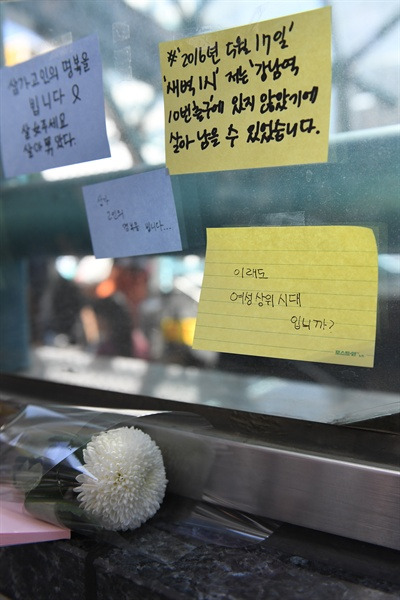 삼가 고인의 명복을
빕니다
살려주세요
살아남았다.
※'2016년 5월 17일'
'새벽 1시' 저는 '강남역
10번출구'에 있지 않았기에
살아 남을 수 있었습니다.
삼가
고인의
명복을 빕니다...
이래도
여성상위시대
입니까?
포스트-잇